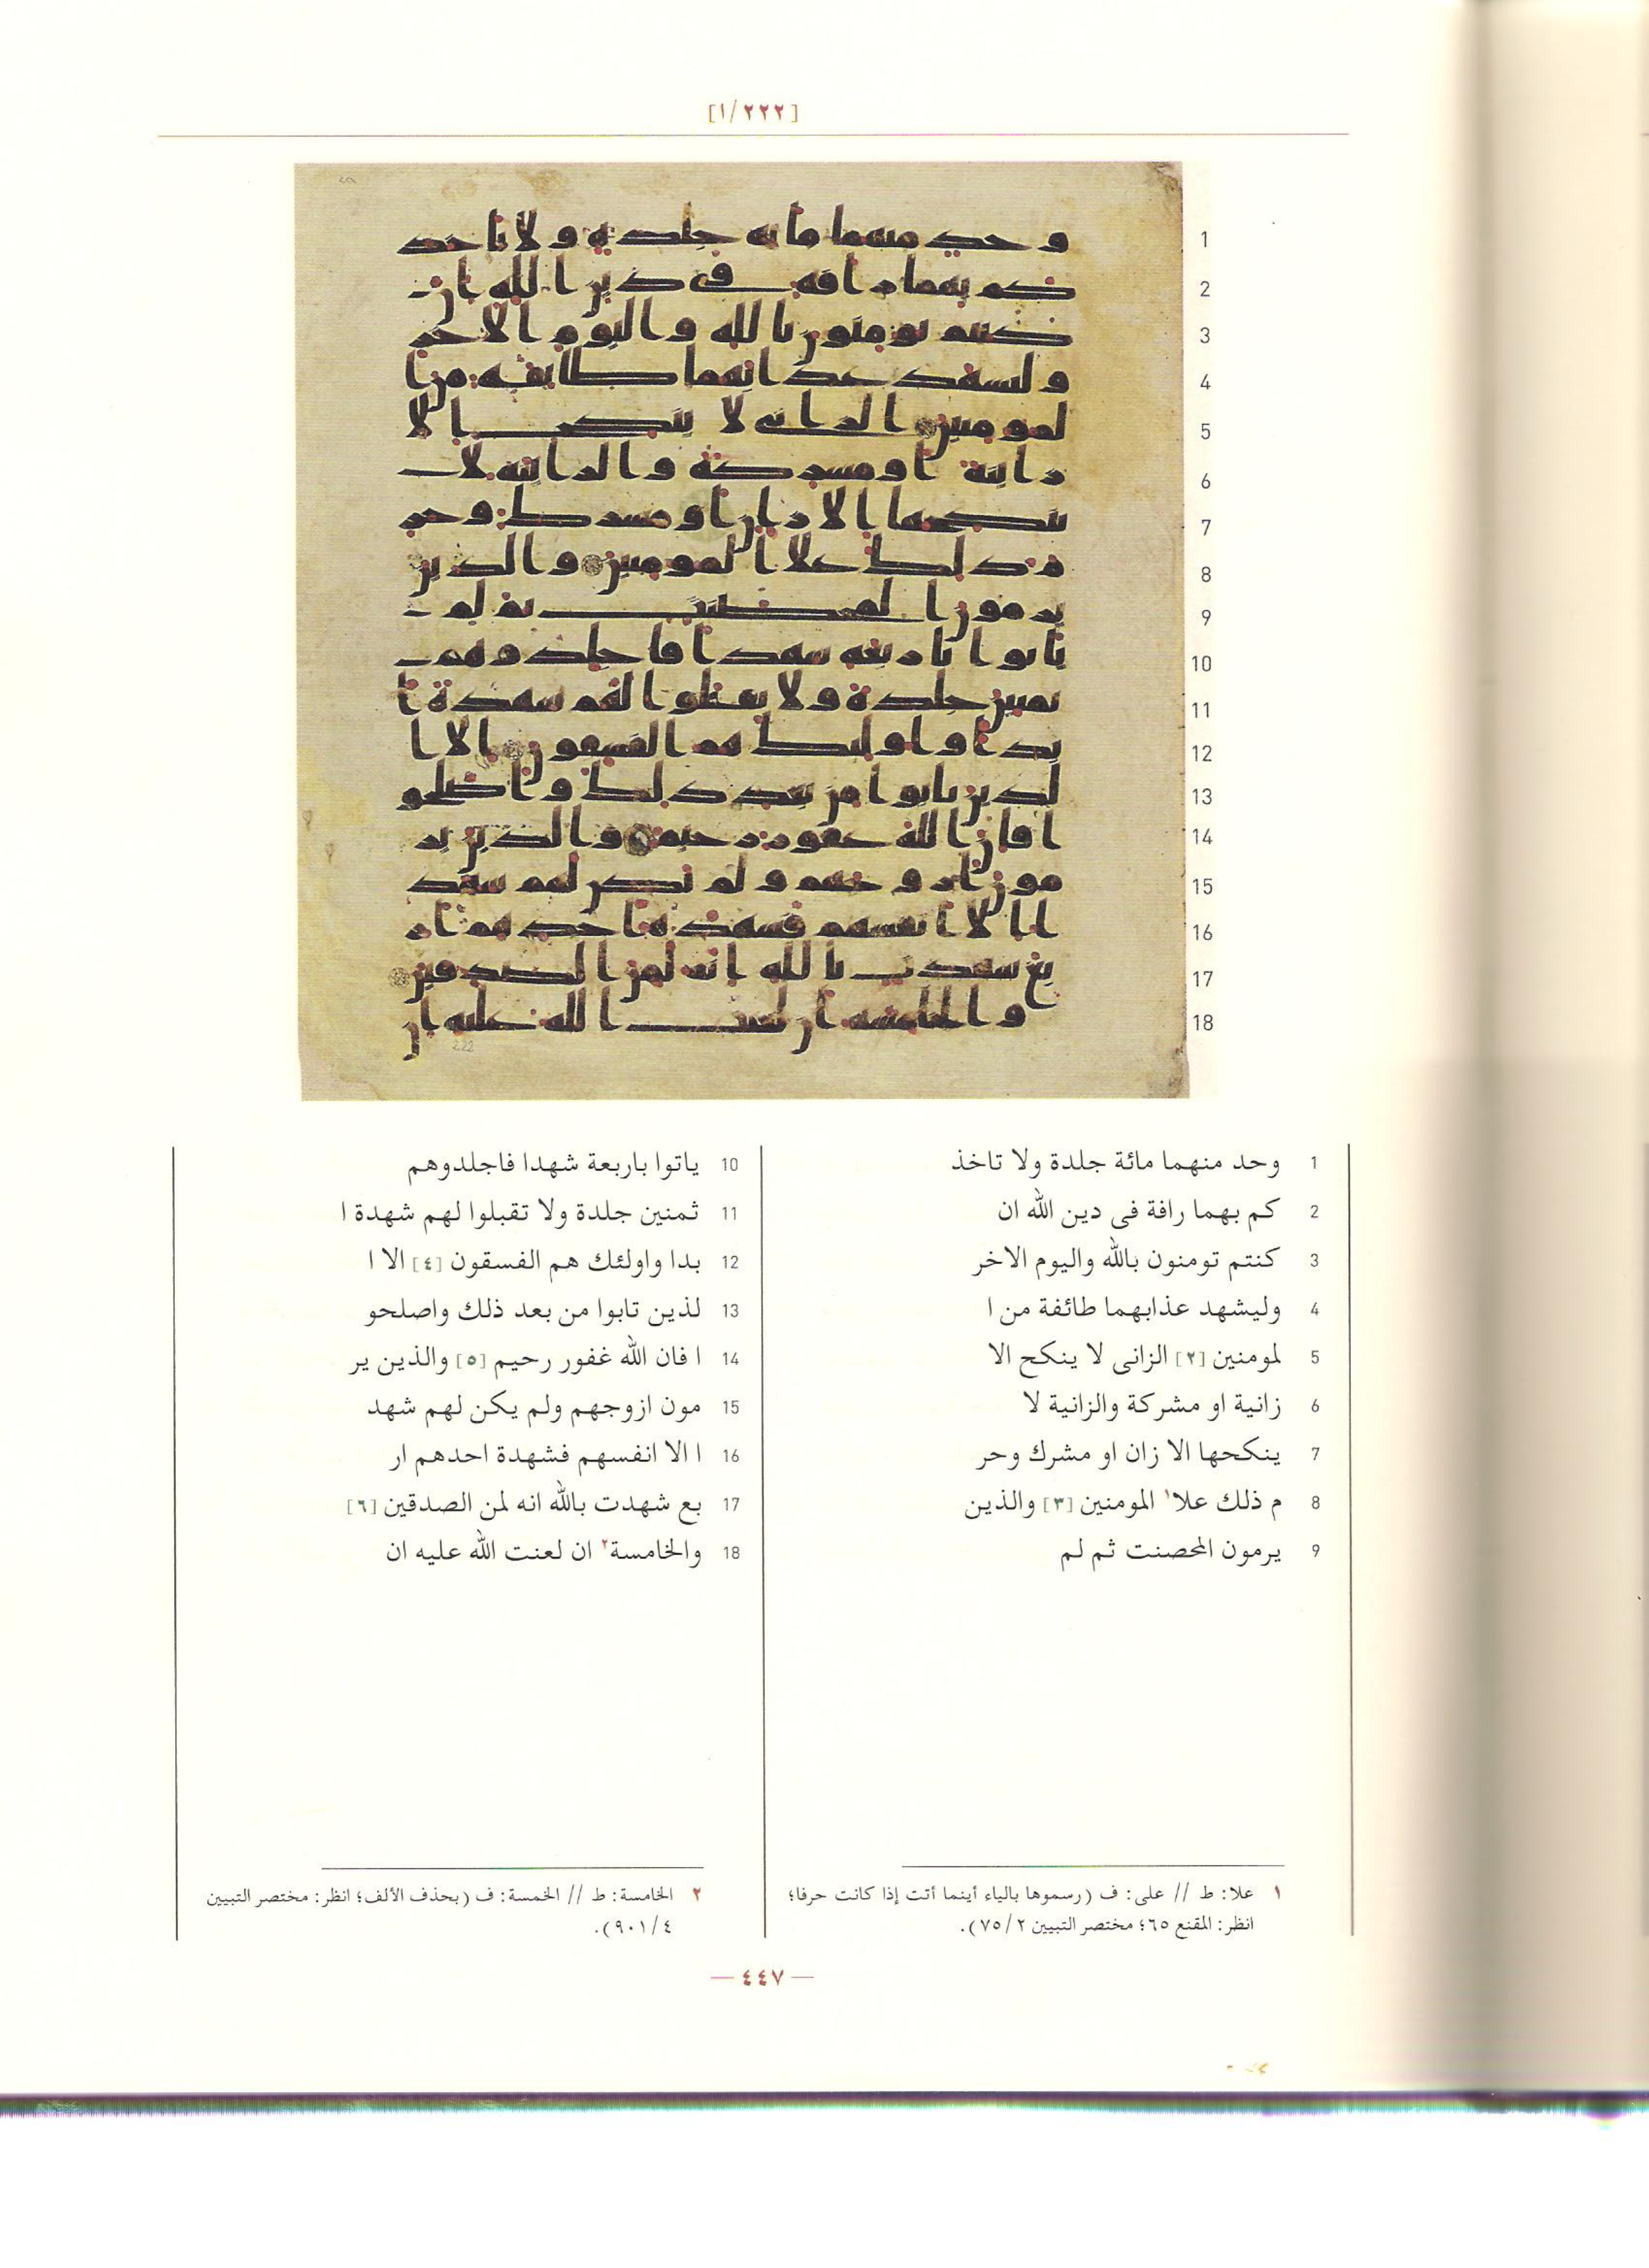 [١/٢٢٢]
1
2
3
4
5
6
7
8
9
10
11
12
13
14
15
16
17
18
222
1 وحد منهما مائة جلدة ولا تاخذ
2 كم بهما رافة فى دين الله ان
3 كنتم تومنون بالله واليوم الاخر
4 وليشهد عذابهما طائفة من ا
5 لمومنين [٢] الزانى لا ينكح الا
6 زانية او مشركة والزانية لا
7 ينكحها الا زان او مشرك وحر
8 م ذلك علا١ المومنين [٣] والذين
9 يرمون المحصنت ثم لم
10 ياتوا باربعة شهدا فاجلدوهم
11 ثمنين جلدة ولا تقبلوا لهم شهدة ا
12 بدا واولئك هم الفسقون [٤] الا ا
13 لذين تابوا من بعد ذلك واصلحو
14 ا فان الله غفور رحيم [٥] والذين ير
15 مون ازوجهم ولم يكن لهم شهد
16 ا الا انفسهم فشهدة احدهم ار
17 بع شهدت بالله انه لمن الصدقين [٦]
18 والخامسة٢ ان لعنت الله عليه ان
١ علا: ط // على: ف (رسموها بالياء أينما أتت إذا كانت حرفا؛
انظر: المقنع ٦٥؛ مختصر التبيين ٧٥/٢).
٢ الخامسة: ط // الخمسة: ف (بحذف الألف؛ انظر: مختصر التبيين
٩٠١/٤).
— ٤٤٧ —